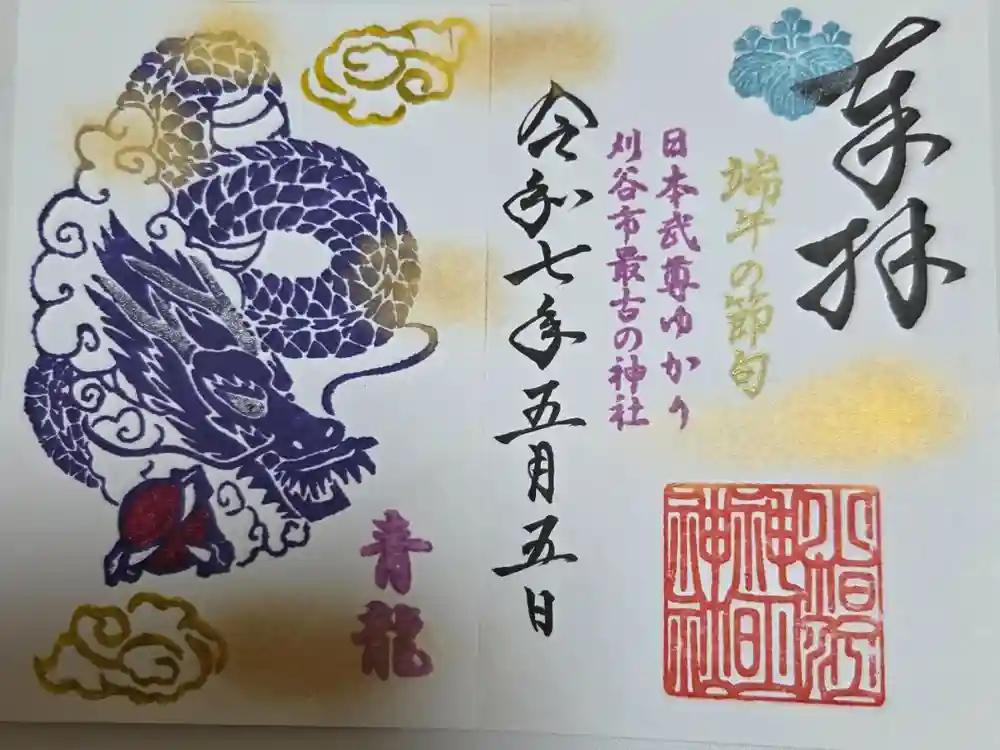 奉拝
端午の節句
日本武尊ゆかり
刈谷市最古の神社
小垣江
神明
神社
令和七年五月五日
青龍